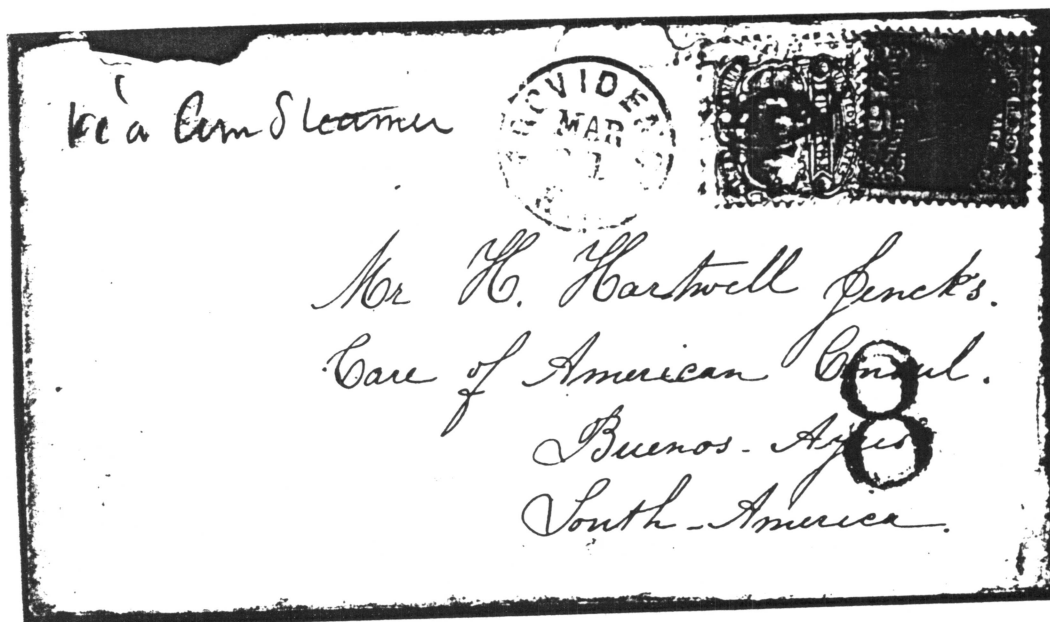 via Am Steamer
PROVIDEN
MAR
Mr H. Hartwell Jencks.
Care of American Consul.
Buenos-Ayres
South-America.
8